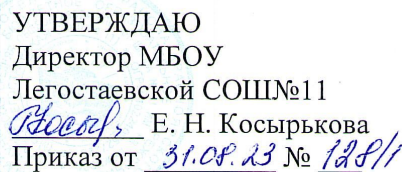 УТВЕРЖДАЮ
Директор МБОУ
Легостаевской СОШ№11
Косыр, Е. Н. Косырькова
Приказ от 31.08.23 № 128/1